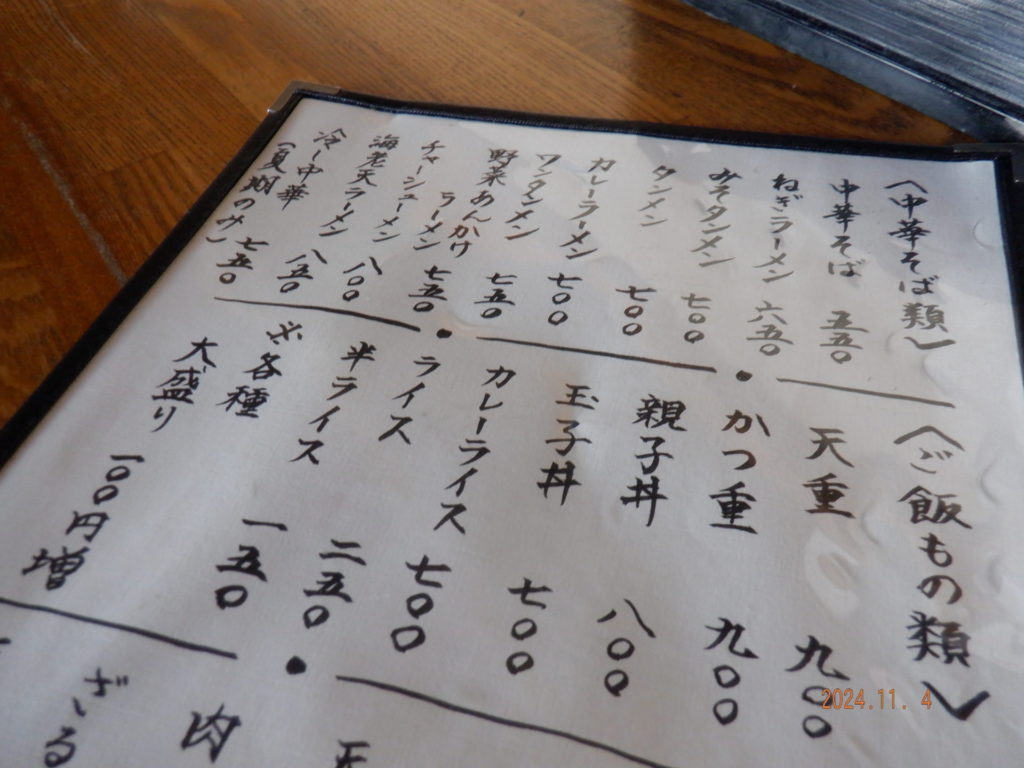 〈中華そば類〉
中華そば 五五〇
ねぎラーメン 六五〇
みそタンメン 七〇〇
タンメン 七〇〇
カレーラーメン 七〇〇
ワンタンメン 七五〇
野菜あんかけ
ラーメン 七五〇
チャーシューメン 八〇〇
海老天ラーメン 八五〇
冷し中華
(夏期のみ) 七五〇
〈ご飯もの類〉
天重 九〇〇
かつ重 九〇〇
親子丼 八〇〇
玉子丼 七〇〇
カレーライス 七〇〇
ライス 二五〇
半ライス 一五〇
※各種
大盛り 一〇〇円増
天
肉
ざる
2024.11. 4